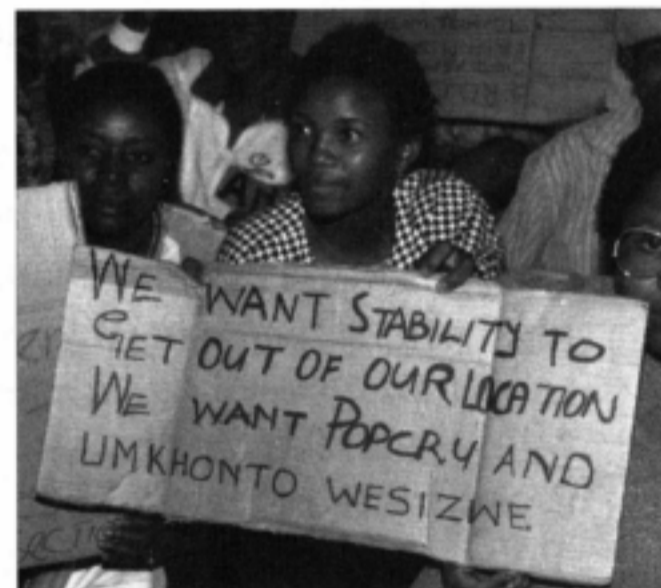 WE WANT STABILITY TO
GET OUT OF OUR LOCATION
WE WANT POPCRY AND
UMKHONTO WESIZWE